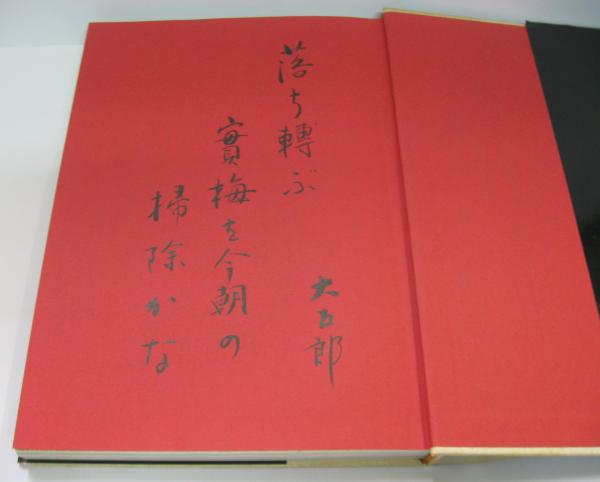 落ち轉ぶ
實梅を今朝の
掃除かな
大五郎